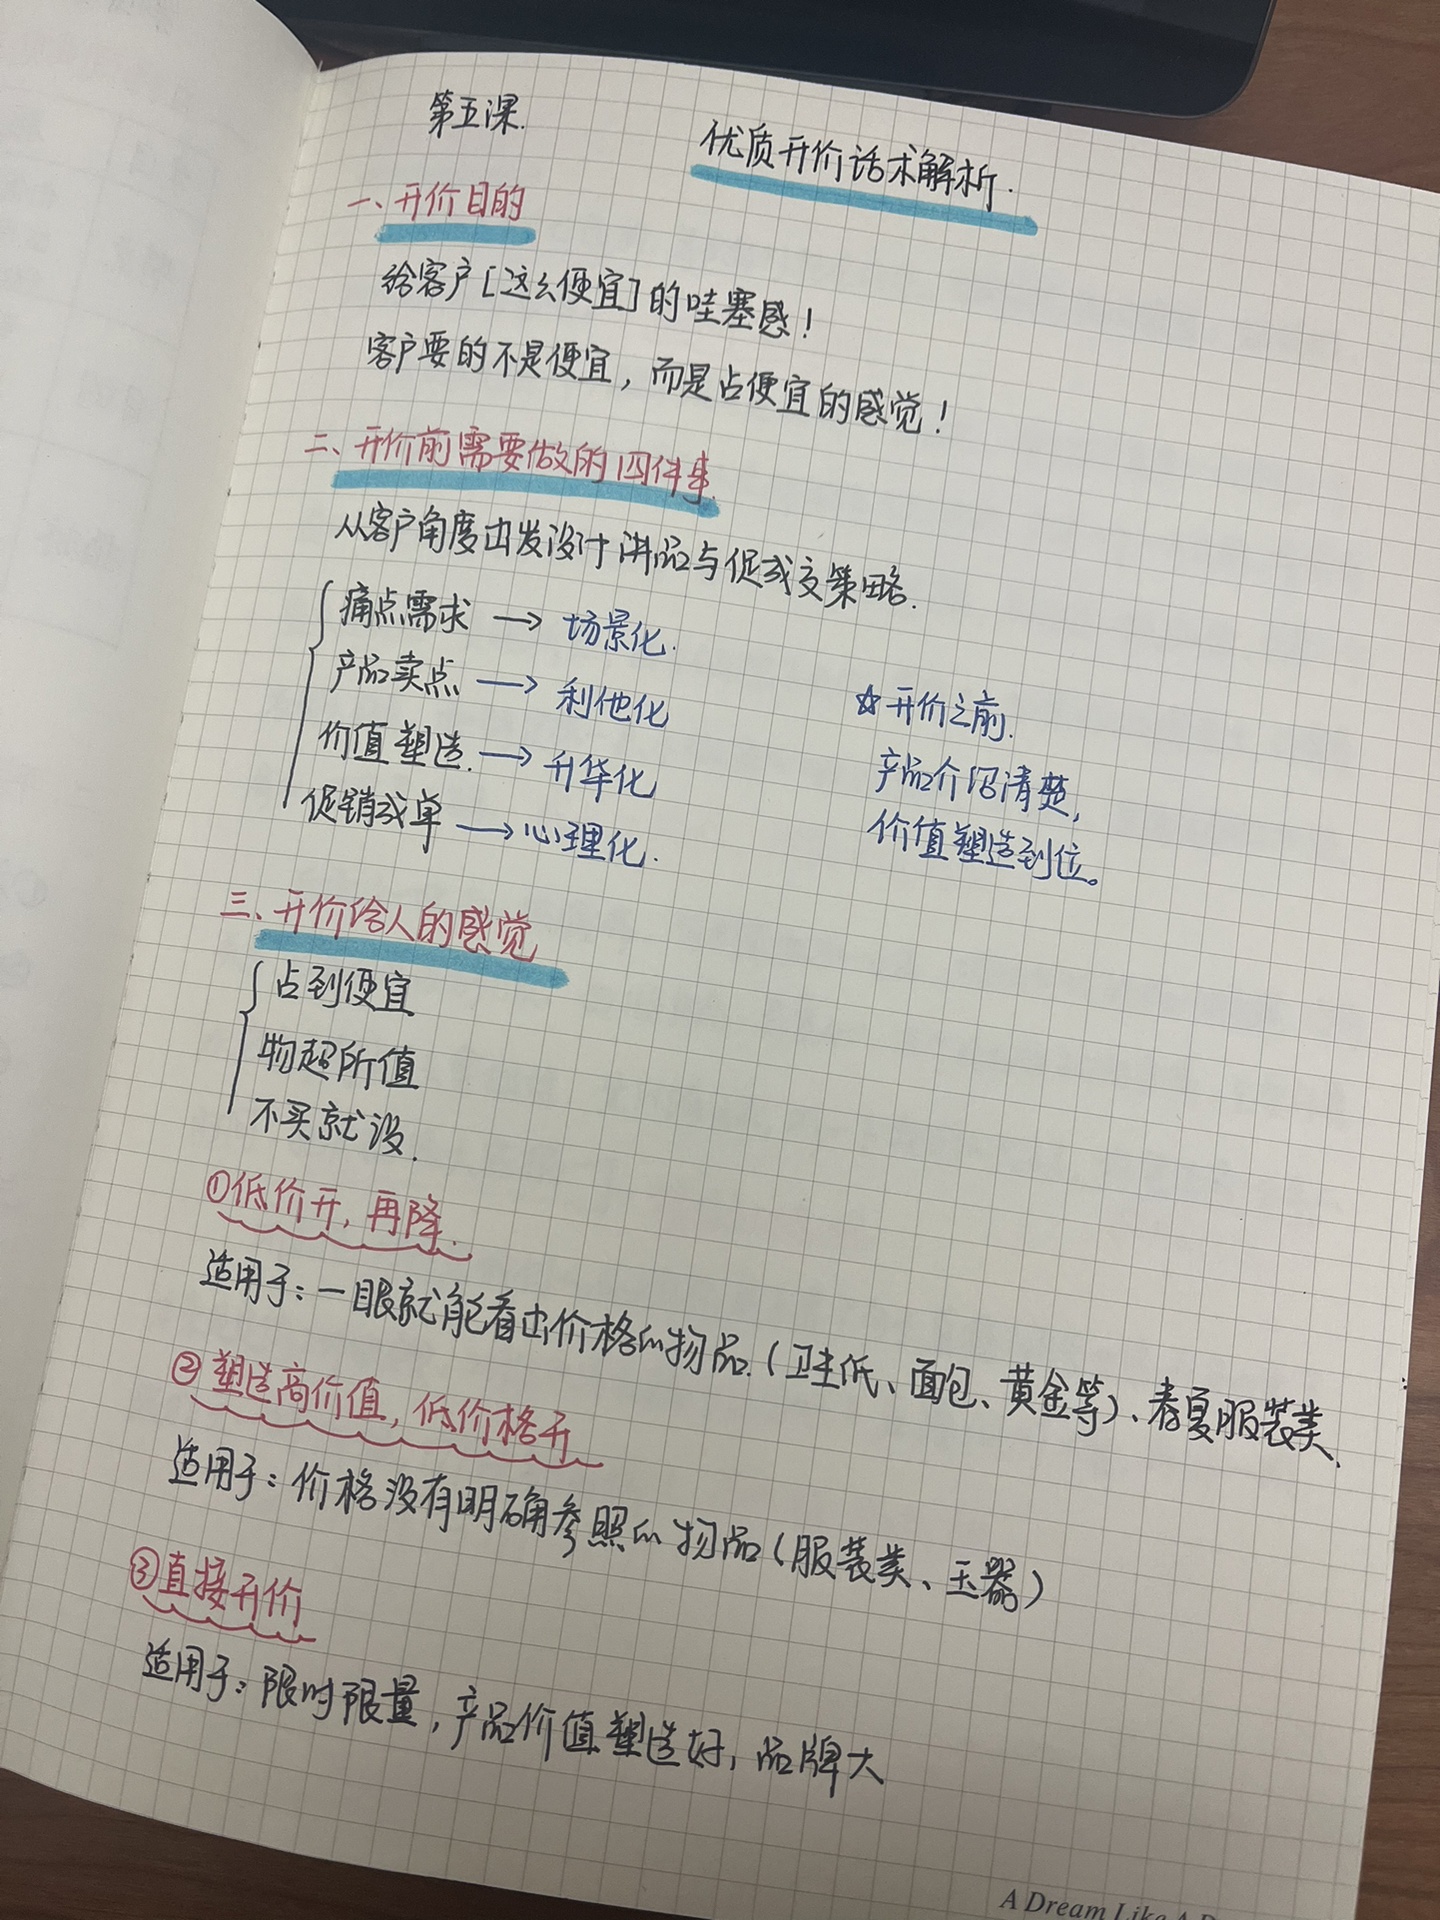 第五课.
优质开价话术解析.
一、开价目的
给客户[这么便宜]的哇塞感!
客户要的不是便宜,而是占便宜的感觉!
二、开价前需要做的四件事.
从客户角度出发设计讲品与促成交策略.
痛点需求 → 场景化.
产品卖点 → 利他化
价值塑造. → 升华化
促销成单 → 心理化.
☆开价之前.
产品介绍清楚,
价值塑造到位。
三、开价给人的感觉
占到便宜
物超所值
不买就没.
①低价开,再降.
适用于:一眼就能看出价格的物品.(卫生低、面包、黄金等)、春夏服装类、
②塑造高价值,低价格开
适用于:价格没有明确参照的物品(服装类、玉器)
③直接开价
适用于:限时限量,产品价值塑造好,品牌大
A Dream Like A D